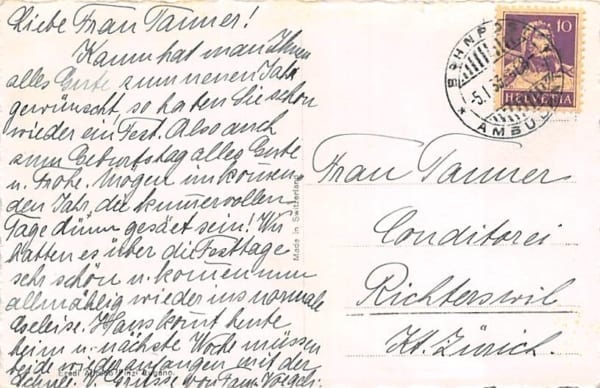 Liebe Frau Tanner!
Kaum hat man Ihnen
alles Gute zum neuen Jahr
gewünscht, so haben Sie schon
wieder ein Fest. Also auch
zum Geburtstag alles Gute
u. Frohe. Mögen im kommen-
den Jahr, die kummervollen
Tage dünn gesäet sein! Wir
hatten es über die Festtage
sehr schön u. komen nun
allmählig wieder ins normale
Geleise. Hans komt heute
heim u. nächste Woche müssen
beide wieder anfangen mit der
Schule. V. Grüsse von Fam.
Made in Switzerland
Lugano.
10
HELVETIA
BAHNP
5.I.
AMBUL
Frau Tanner
Conditorei
Richterswil
Kt. Zürich.